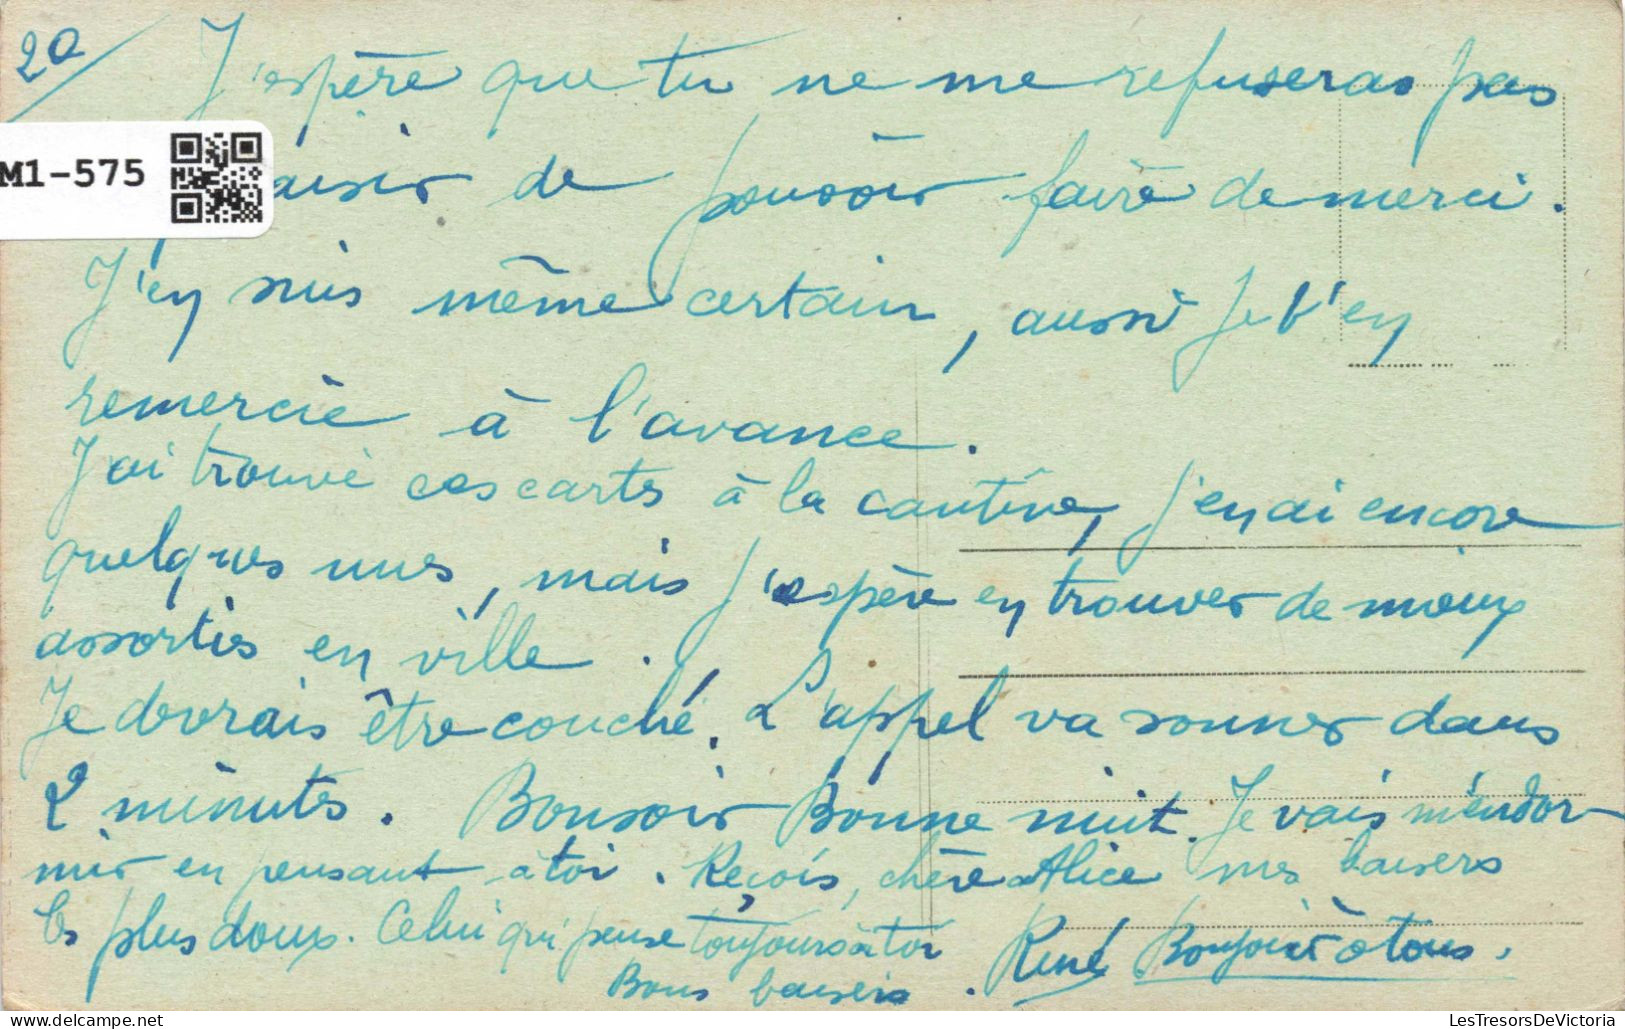 2°/ J'espère que tu ne me refuseras pas
M1-575
aisir de pouvoir faire de merci.
J'en suis même certain, aussi je t'en
remercie à l'avance.
J'ai trouvé ces cartes à la cantine, j'en ai encore
quelques unes, mais j'espère en trouver de mieux
assorties en ville.
Je devrais être couché. L'appel va sonner dans
2 minutes. Bonsoir Bonne nuit. Je vais m'endor-
mir en pensant à toi. Reçois, chère Alice mes baisers
les plus doux. Celui qui pense toujours à toi
René Bonjour à tous.
Bons baisers.
LesTresorsDeVictoria